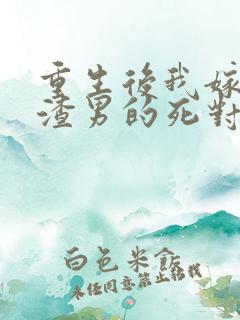 重生後我嫁
渣男的死對
白色米飯
未经同意禁止转载